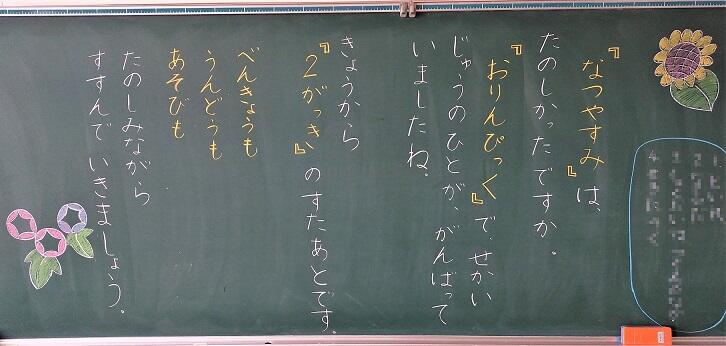 『なつやすみ』は、
たのしかったですか。
『おりんぴっく』で、せかい
じゅうのひとが、がんばって
いましたね。
きょうから
『2がっき』のすたあとです。
べんきょうも
うんどうも
あそびも
たのしみながら
すすんでいきましょう。